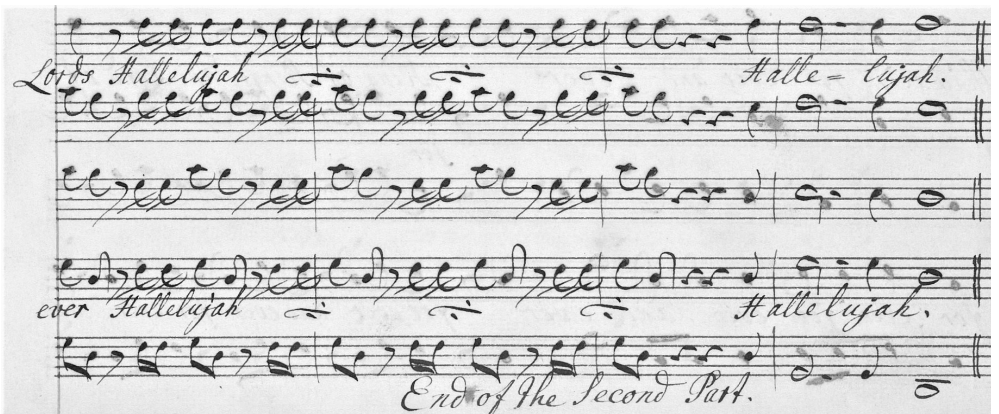 Lords Hallelujah Halle= lujah.
ever Hallelujah Hallelujah.
End of the Second Part.